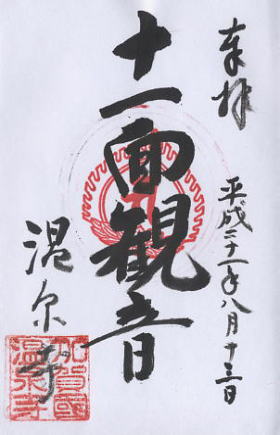 奉拝
平成二十一年八月十三日
十一面観音
温泉寺
加賀國
温泉寺